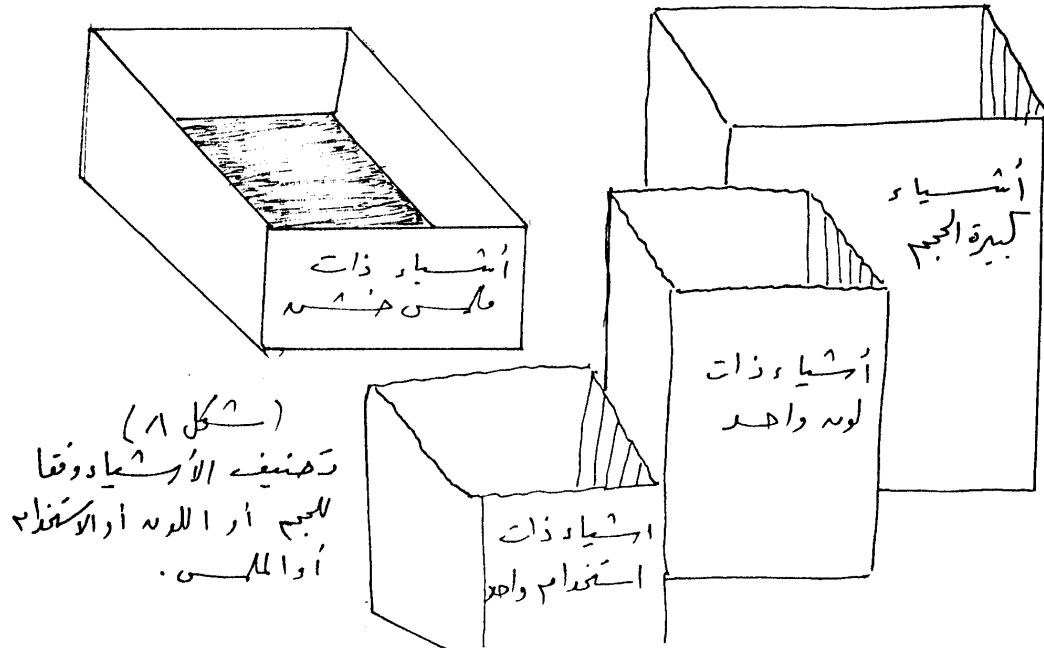 أشياء
كبيرة الحجم
أشياء ذات
ملمس خشن
أشياء ذات
لون واحد
اشياء ذات
استخدام واحد
(شكل ٨)
تصنيف الأشياء وفقا
للحجم أو اللون أو الاستخدام
أو الملمس.